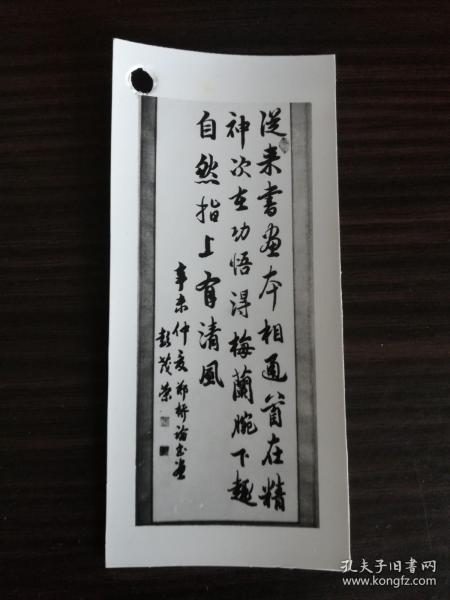 從来書畫本相通首在精
神次在功悟得梅蘭腕下趣
自然指上有清風
辛未仲夏
彭茂荣
孔夫子旧书网
www.kongfz.com